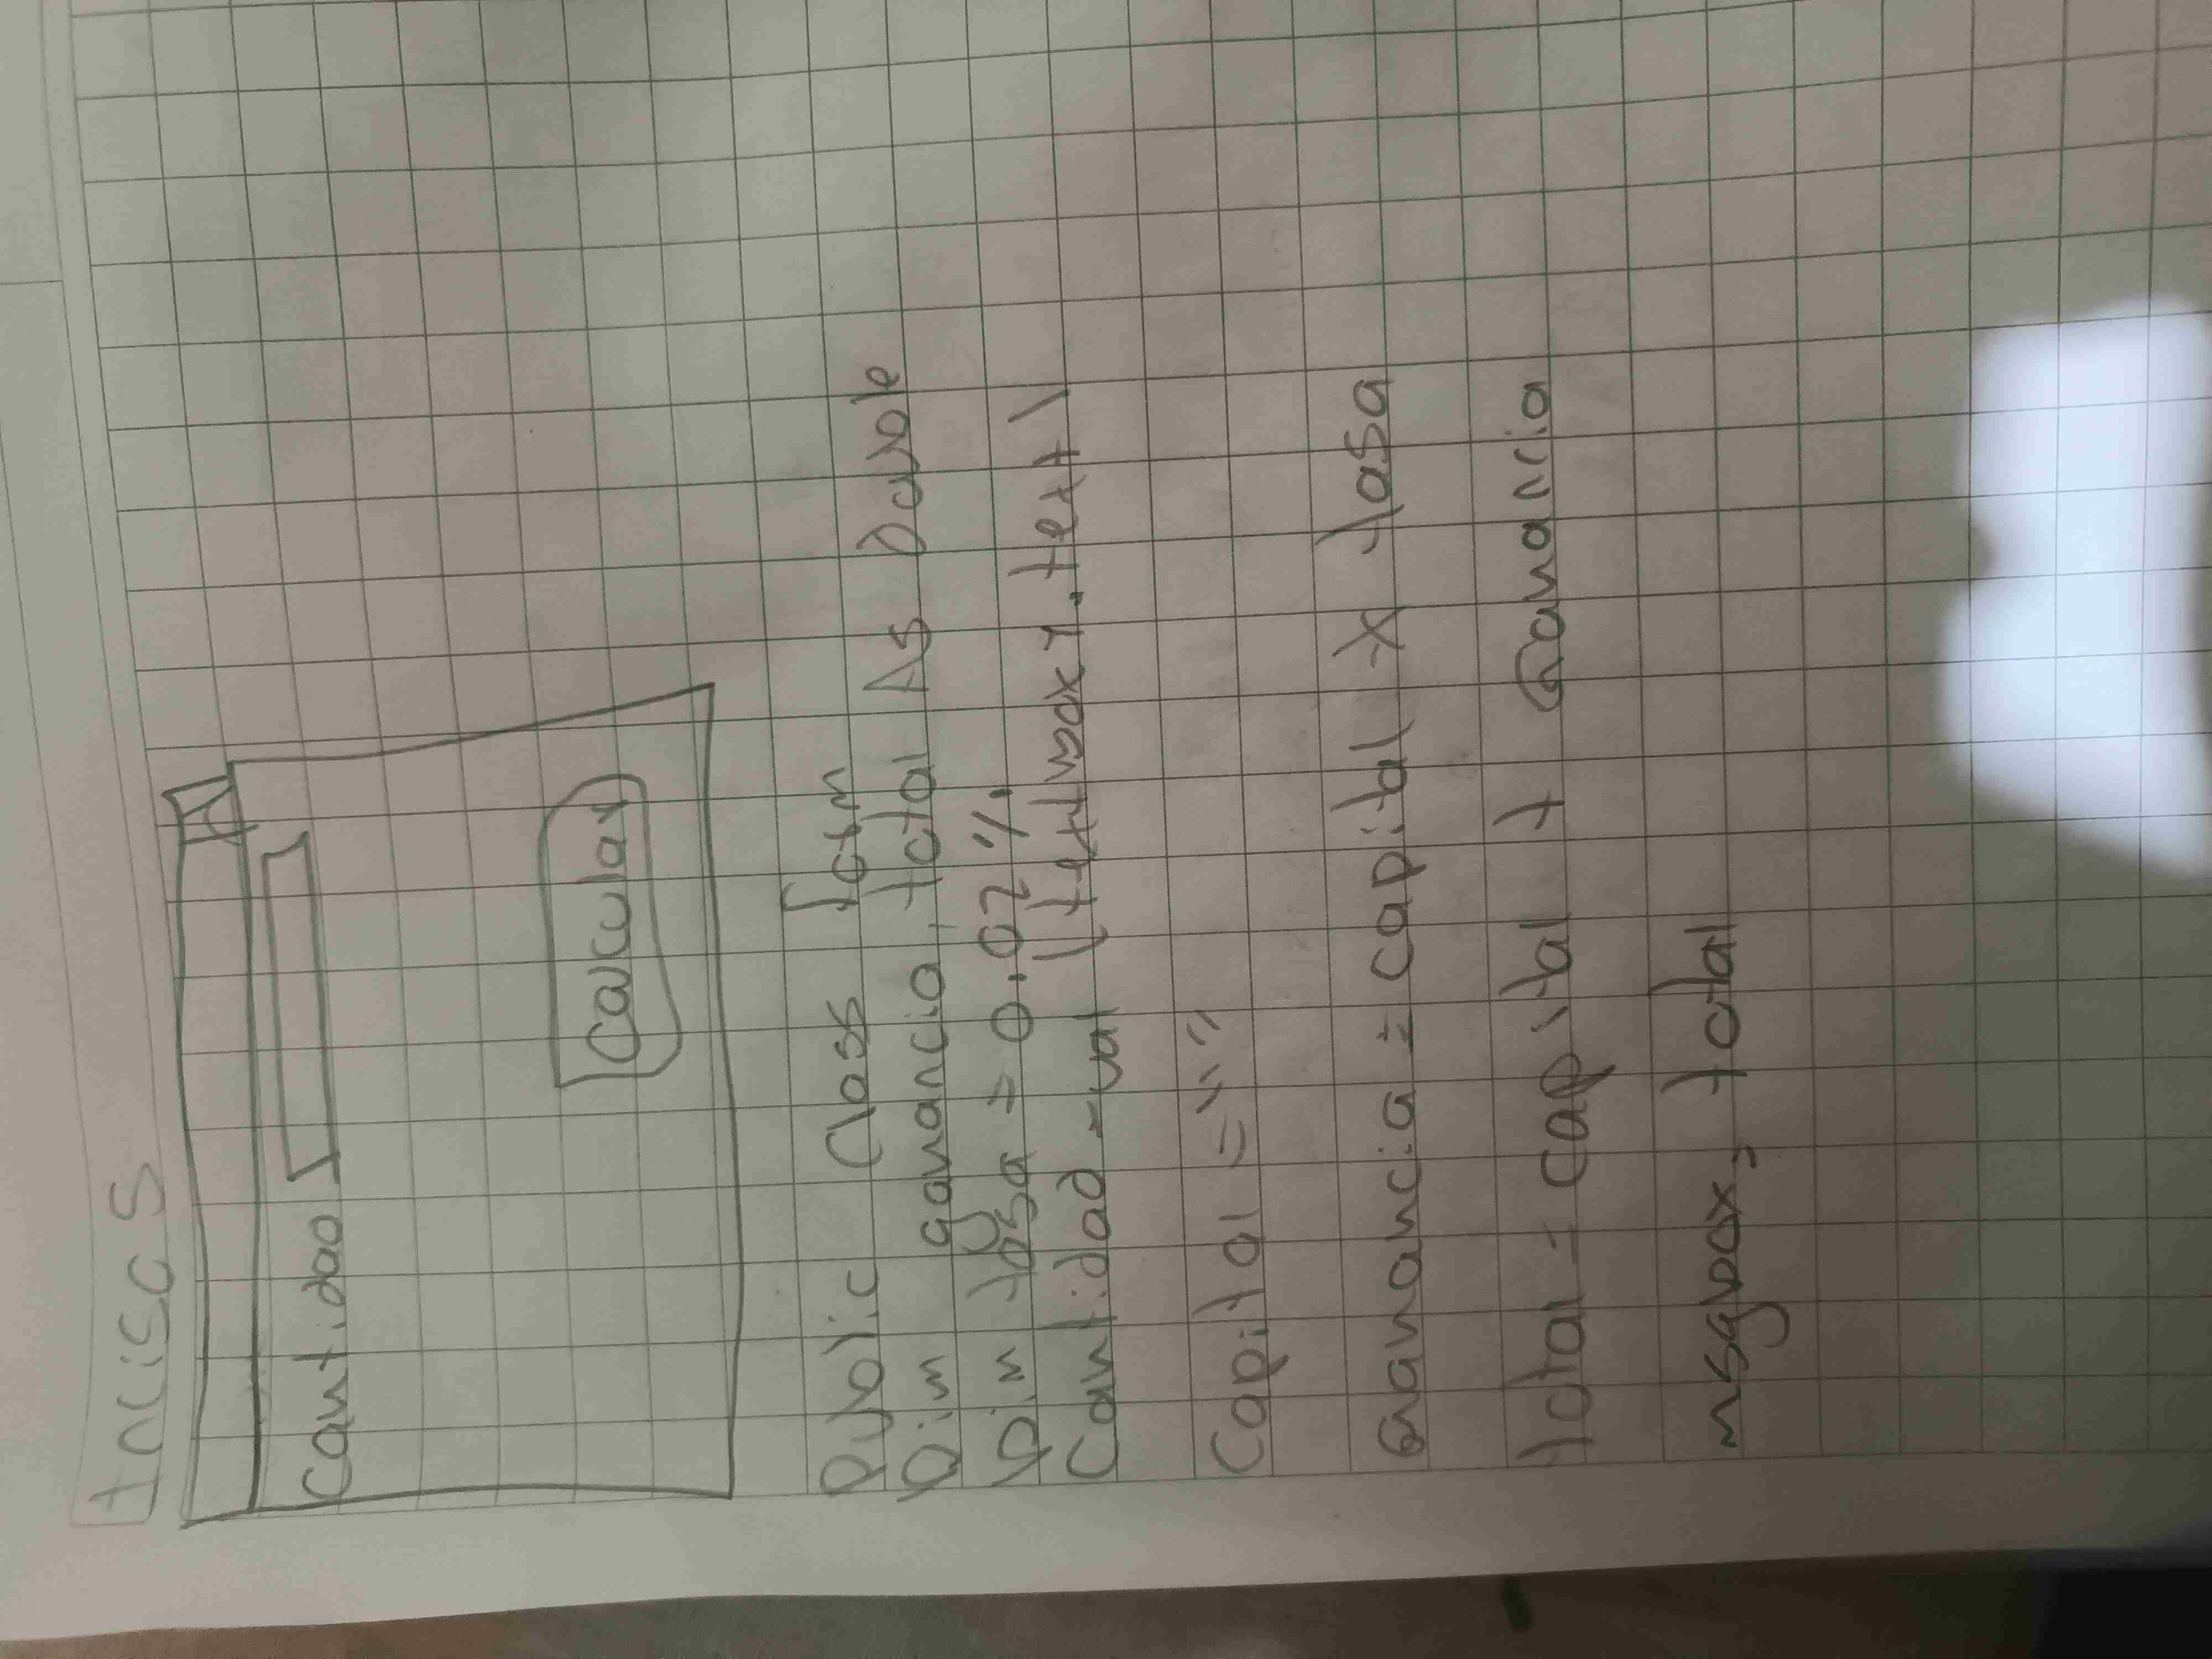 Inciso S
Cantidad
Calcular
Public Class form
Dim ganancia, total As Double
Dim tasa = 0.02%
Cantidad = val (textbox1.text)
Capital = ""
Ganancia = capital * tasa
total = capital + Ganancia
msgbox, total